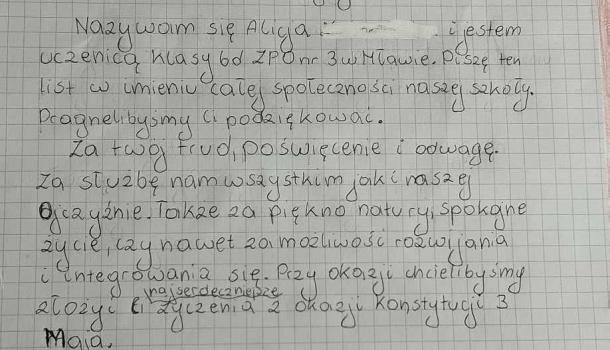 Nazywam się Alicja i jestem
uczenicą klasy 6d ZPO nr 3 w Mławie. Piszę ten
list w imieniu całej społeczności naszej szkoły.
Pragnelibyśmy Ci podziękować.
Za twój trud, poświęcenie i odwagę.
Za służbę nam wszystkim jak i naszej
Ojczyźnie. Także za piękno natury, spokojne
życie, czy nawet za możliwość rozwijania
i integrowania się. Przy okazji chcielibyśmy
najserdeczniejsze
złożyć Ci życzenia z okazji Konstytucji 3
Maja.